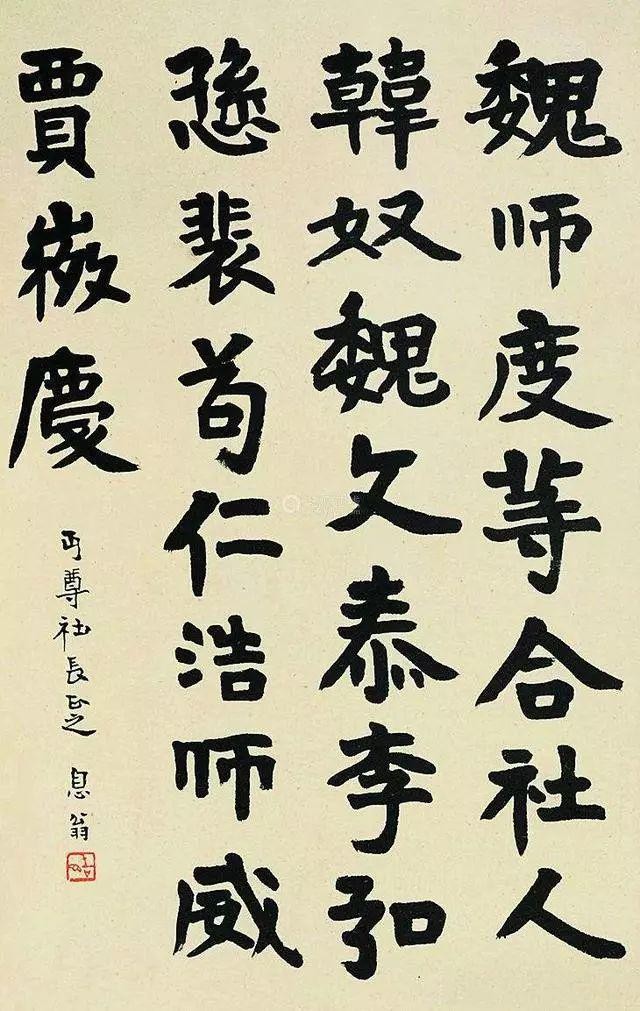 魏师度等合社人
韓奴魏文泰李弘
愻裴苟仁浩师威
賈
慶
丏尊社長正之
息翁